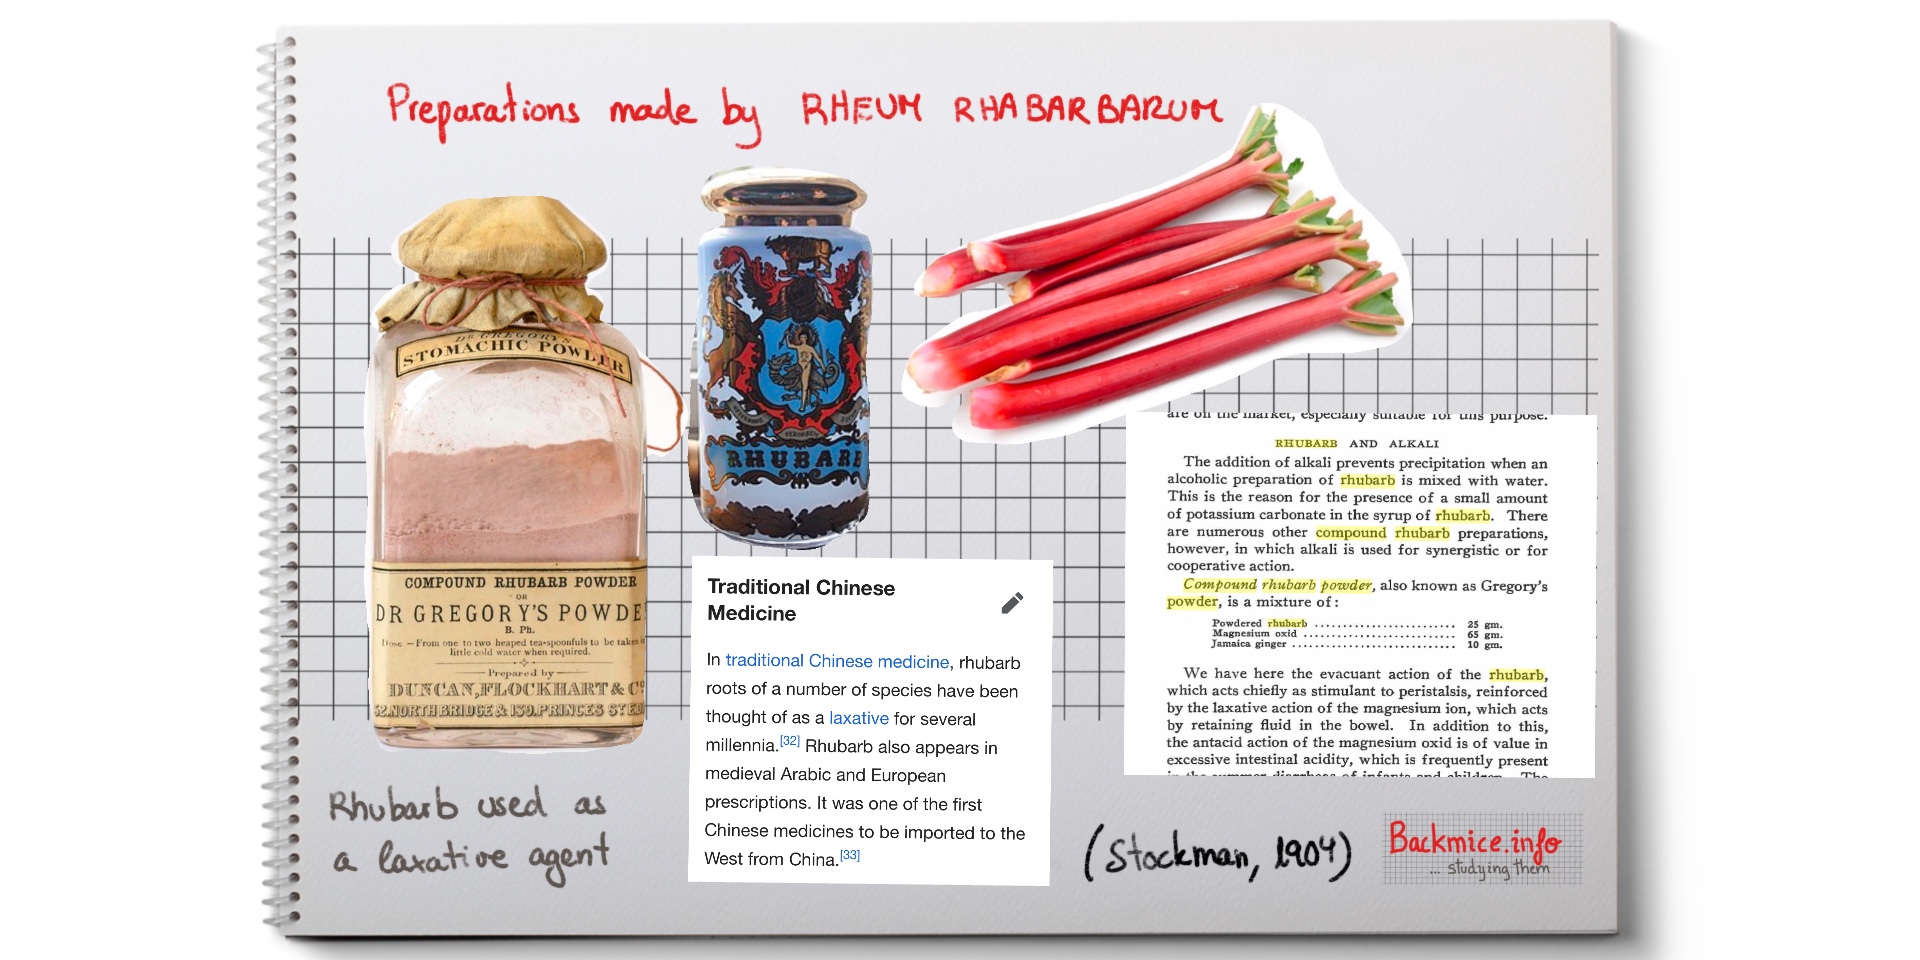 Preparations made by RHEUM RHABARBARUM
DR GREGORY'S
STOMACHIC POWDER
COMPOUND RHUBARB POWDER
OR
DR GREGORY'S POWDE
B. Ph.
Dose.—From one to two heaped tea-spoonfuls to be taken in
little cold water when required.
Prepared by
DUNCAN, FLOCKHART & Co
52, NORTH BRIDGE & 139, PRINCES ST EDI
RHUBARB
Traditional Chinese
Medicine
In traditional Chinese medicine, rhubarb
roots of a number of species have been
thought of as a laxative for several
millennia.[32] Rhubarb also appears in
medieval Arabic and European
prescriptions. It was one of the first
Chinese medicines to be imported to the
West from China.[33]
are on the market, especially suitable for this purpose.
RHUBARB AND ALKALI
The addition of alkali prevents precipitation when an
alcoholic preparation of rhubarb is mixed with water.
This is the reason for the presence of a small amount
of potassium carbonate in the syrup of rhubarb. There
are numerous other compound rhubarb preparations,
however, in which alkali is used for synergistic or for
cooperative action.
Compound rhubarb powder, also known as Gregory's
powder, is a mixture of:
Powdered rhubarb ................................ 25 gm.
Magnesium oxid ................................... 65 gm.
Jamaica ginger ..................................... 10 gm.
We have here the evacuant action of the rhubarb,
which acts chiefly as stimulant to peristalsis, reinforced
by the laxative action of the magnesium ion, which acts
by retaining fluid in the bowel. In addition to this,
the antacid action of the magnesium oxid is of value in
excessive intestinal acidity, which is frequently present
in the summer diarrhea of infants and children. The
Rhubarb used as
a laxative agent
(Stockman, 1904)
Backmice.info
... studying them